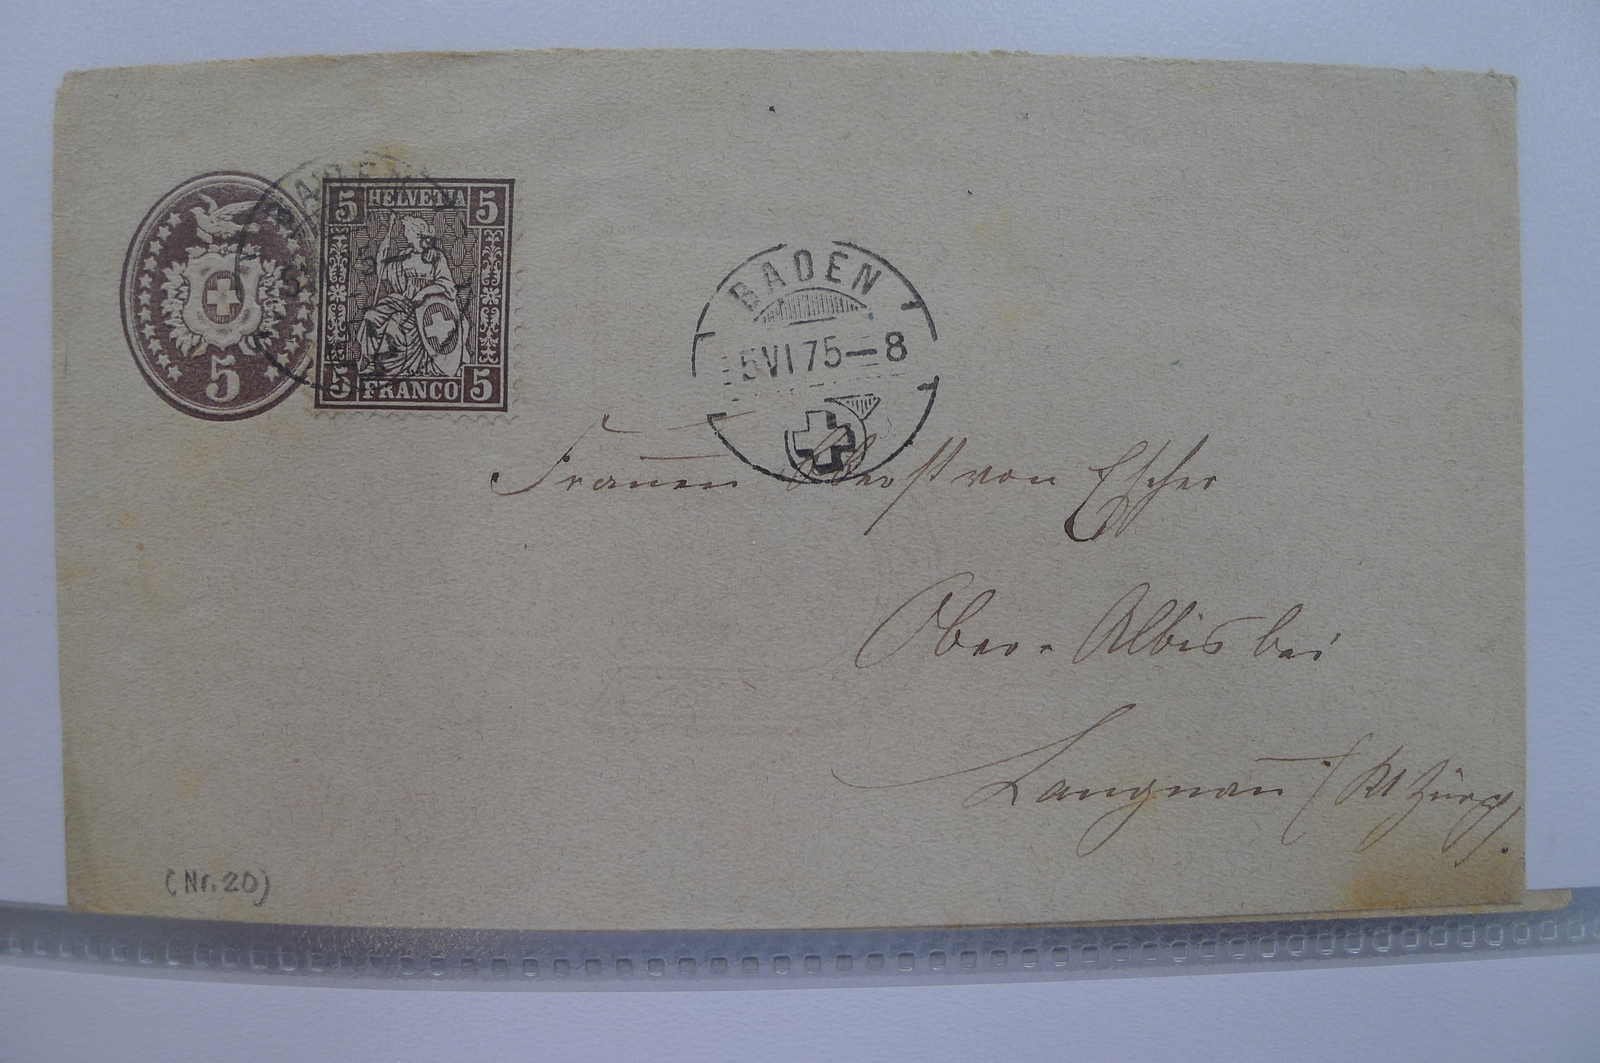 5
5 HELVETIA 5
5 FRANCO 5
BADEN
5 VI 75—8
Frauen Oberst von Escher
Ober-Albis bei
Langnau (Kt Zürich).
(Nr. 20)